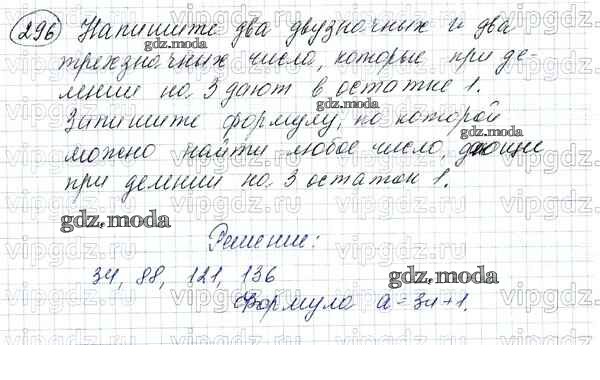 296 Напишите два двузначных и два
трехзначных числа, которые при де-
лении на 3 дают в остатке 1.
Запишите формулу, по которой
можно найти любое число, дающие
при делении на 3 остаток 1.
Решение:
34, 88, 121, 136
Формула a = 3n+1.
gdz.moda
gdz.moda
gdz.moda
gdz.moda
gdz.moda
gdz.moda
vipgdz.ru